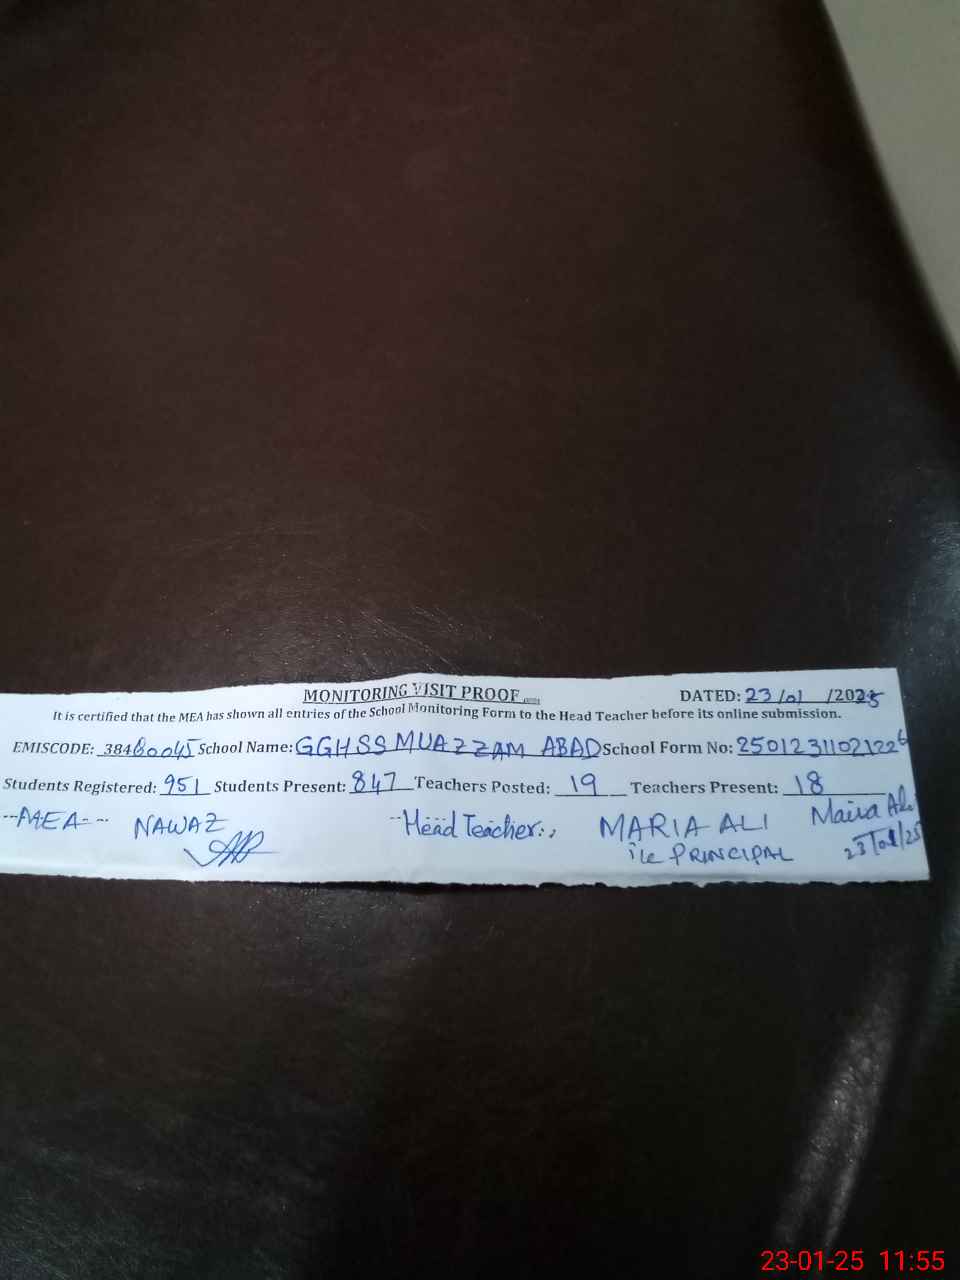 MONITORING VISIT PROOF
DATED: 23/01/2025
It is certified that the MEA has shown all entries of the School Monitoring Form to the Head Teacher before its online submission.
EMISCODE: 38480045 School Name: GGHSS MUAZZAM ABAD School Form No: 25012311021226
Students Registered: 951 Students Present: 847 Teachers Posted: 19 Teachers Present: 18
MEA NAWAZ Head Teacher: MARIA ALI Maria Ali
i/c PRINCIPAL 23/01/25
23-01-25 11:55